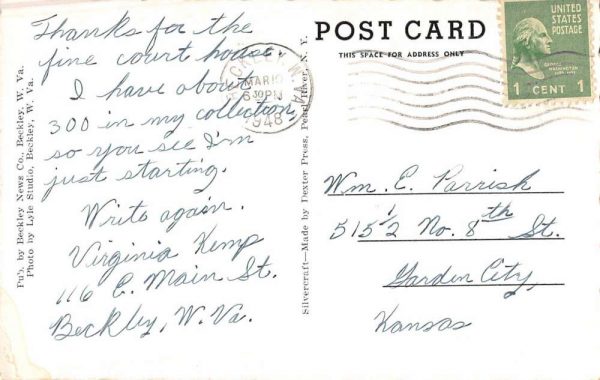 Thanks for the
fine court house.
I have about
300 in my collection,
so you see I'm
just starting.
Write again.
Virginia Kemp
116 E. Main St.
Beckley, W. Va.
Pub. by Beckley News Co., Beckley, W. Va.
Photo by Lyle Studio, Beckley, W. Va.
Silvercraft—Made by Dexter Press, Pearl River, N. Y.
POST CARD
THIS SPACE FOR ADDRESS ONLY
BECKLEY
MAR 10
6 30 PM
1948
UNITED
STATES
POSTAGE
GEORGE
WASHINGTON
1 CENT 1
Wm. C. Parrish
515 1/2 No. 8th St.
Garden City,
Kansas